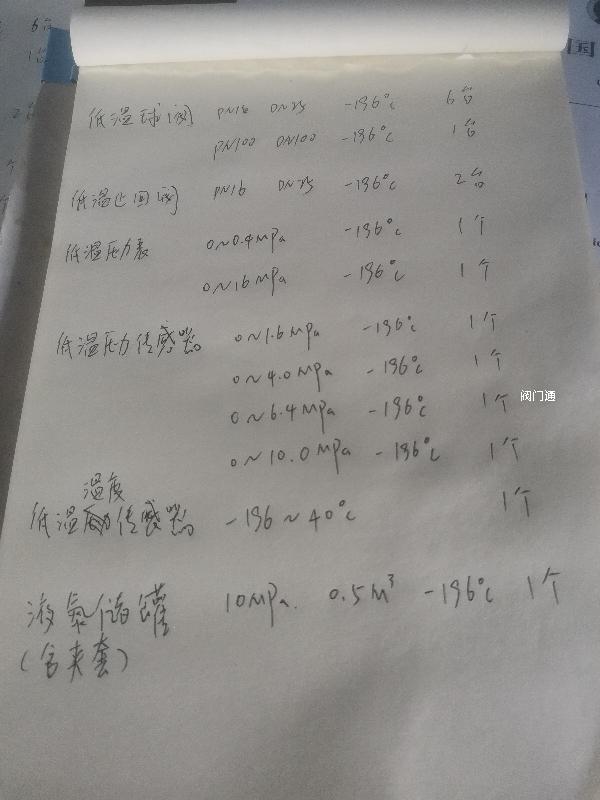 6台
1台
国
低温球阀 PN16 DN25 -196℃ 6台
PN100 DN100 -196℃ 1台
低温止回阀 PN16 DN25 -196℃ 2台
低温压力表 0~0.4MPa -196℃ 1个
0~16MPa -196℃ 1个
低温压力传感器 0~1.6MPa -196℃ 1个
0~4.0MPa -196℃ 1个
0~6.4MPa -196℃ 1个
阀门通
0~10.0MPa -196℃ 1个
温度
低温传感器 -196~40℃ 1个
液氮储罐 10MPa. 0.5M³ -196℃ 1个
(含夹套)